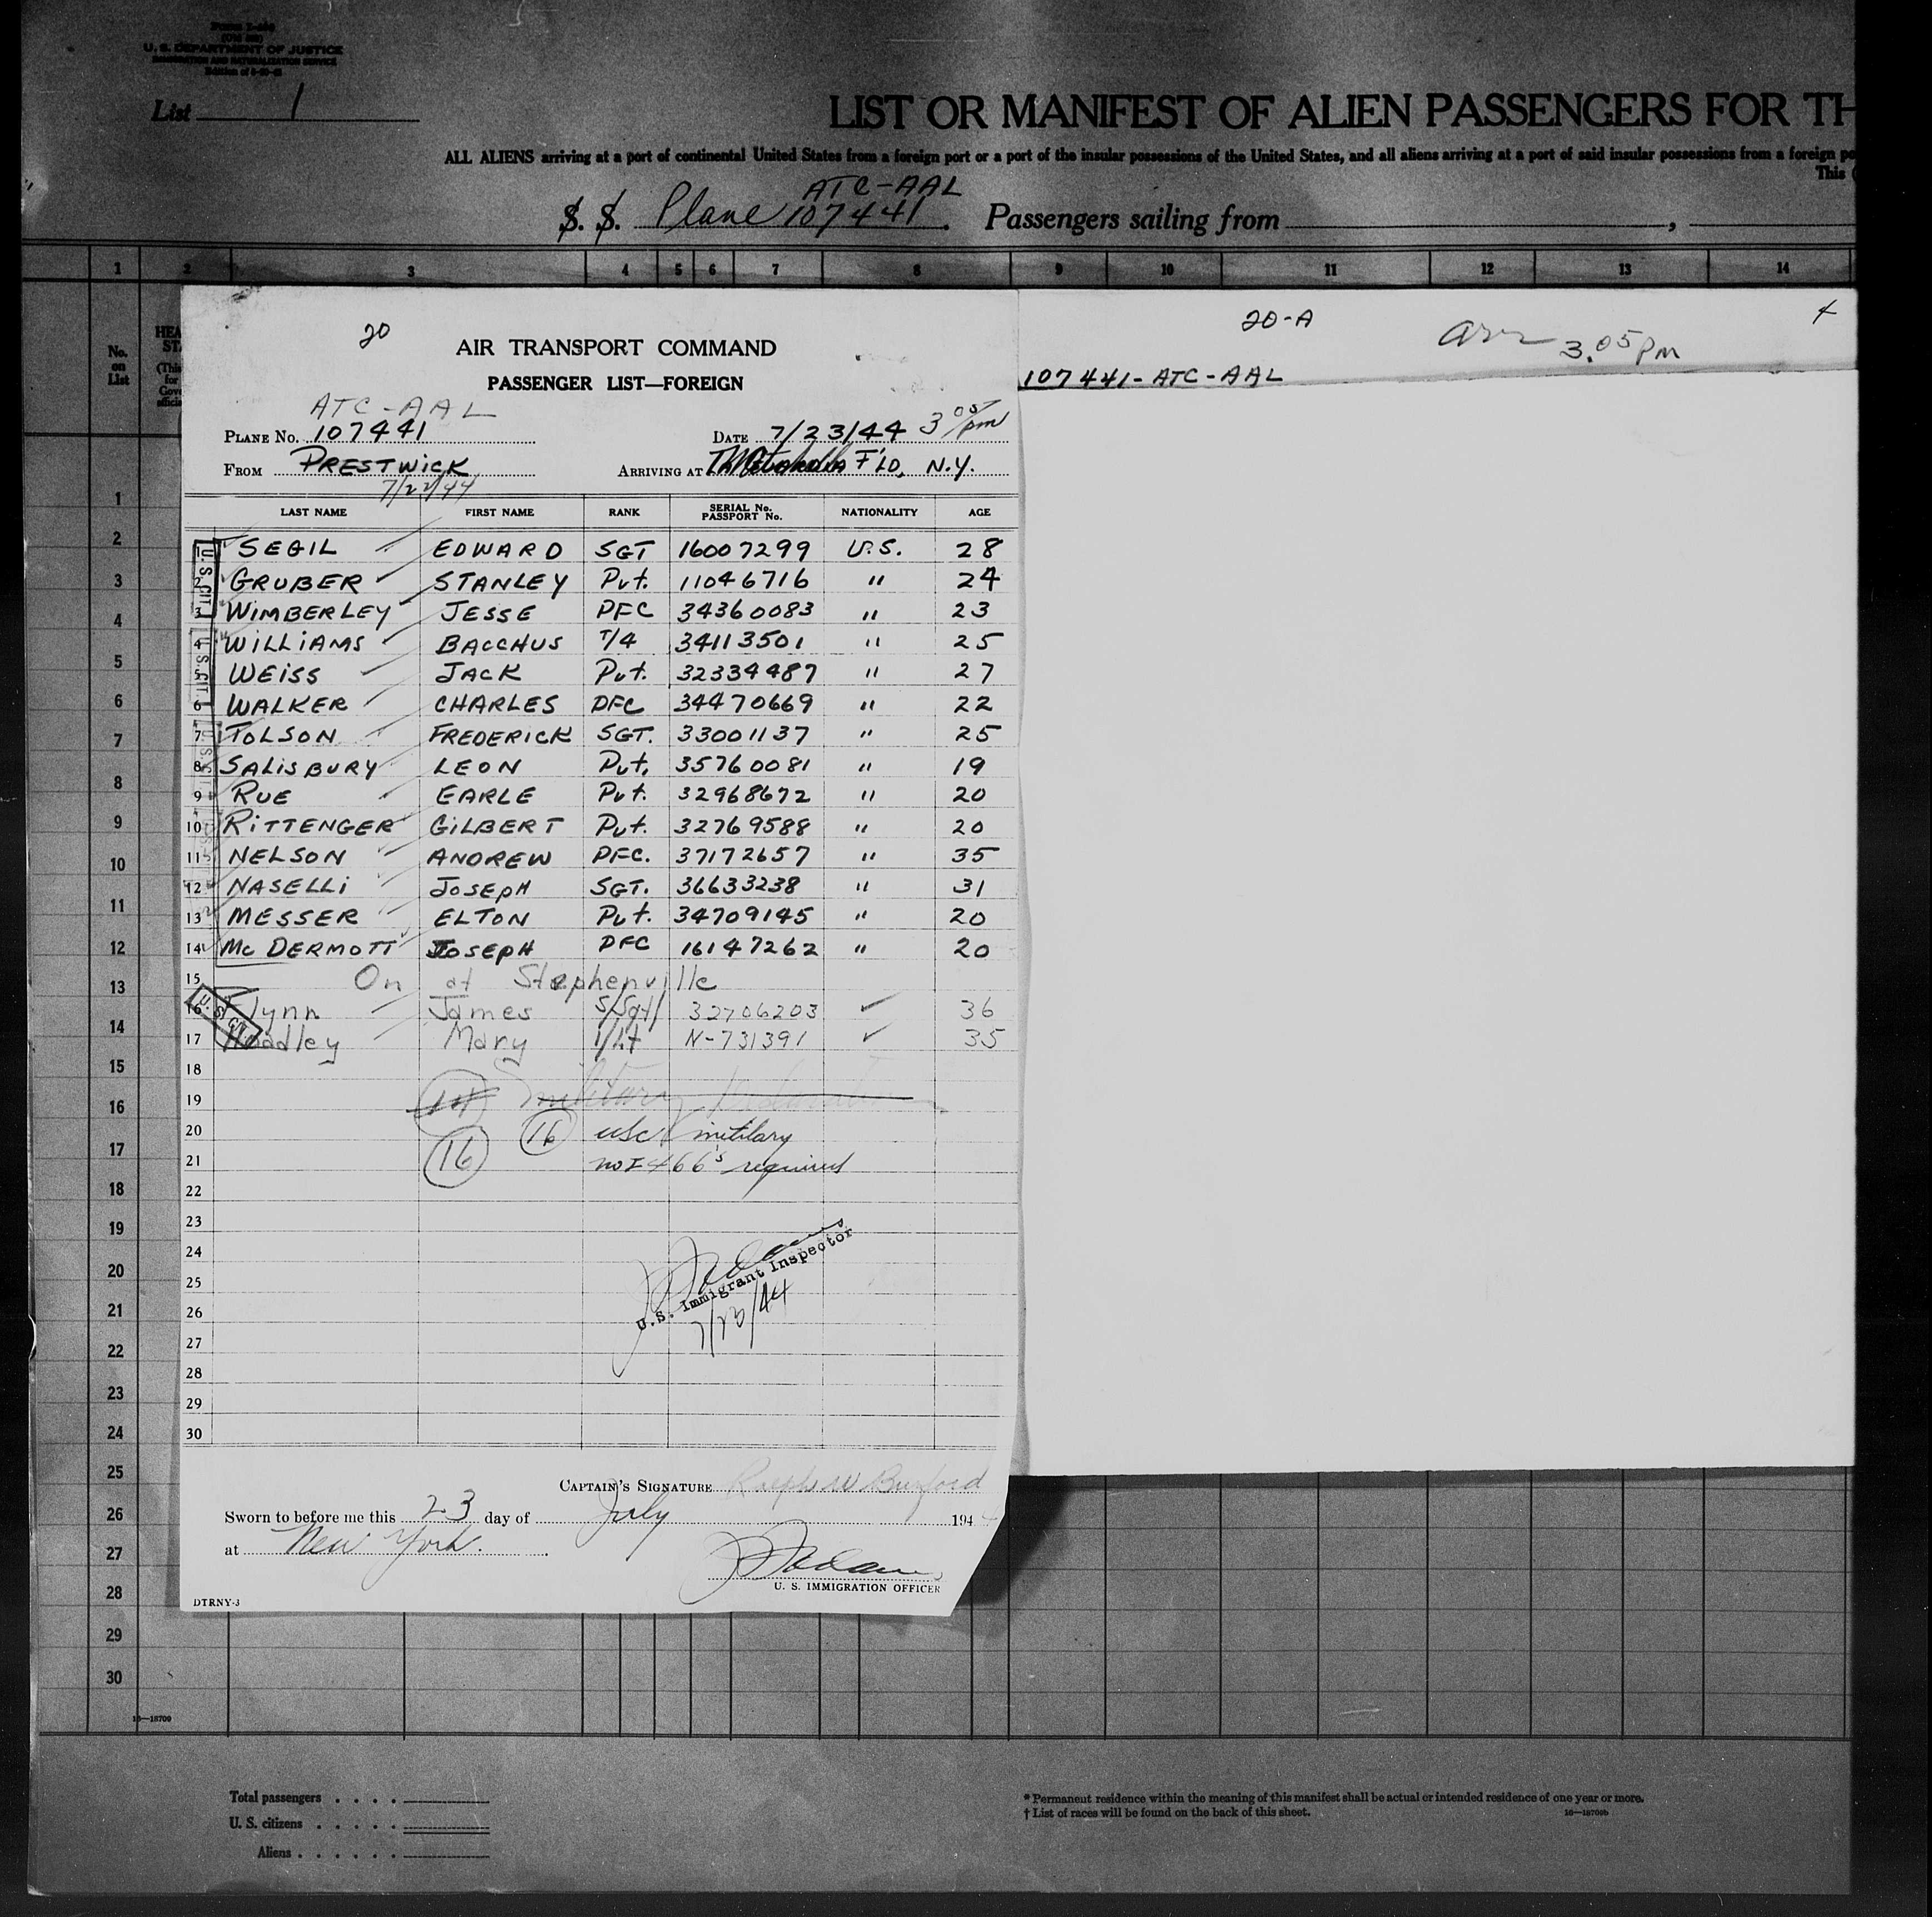 Form I-
U. S. DEPARTMENT OF JUSTICE
IMMIGRATION AND NATURALIZATION SERVICE
List 1
LIST OR MANIFEST OF ALIEN PASSENGERS FOR TH
ALL ALIENS arriving at a port of continental United States from a foreign port or a port of the insular possessions of the United States, and all aliens arriving at a port of said insular possessions from a foreign po
This (
ATC-AAL
S. S. Plane 107441. Passengers sailing from ,
1 2 3 4 5 6 7 8 9 10 11 12 13 14
No. on List
20
AIR TRANSPORT COMMAND
PASSENGER LIST—FOREIGN
20-A
arr 3.05 PM
107441-ATC-AAL
ATC-AAL
PLANE No. 107441 DATE 7/23/44 3 05 pm
FROM PRESTWICK ARRIVING AT F'LD, N.Y.
7/22/44
LAST NAME FIRST NAME RANK SERIAL No. PASSPORT No. NATIONALITY AGE
1 SEGIL EDWARD SGT 16007299 U.S. 28
2 GRUBER STANLEY Pvt. 11046716 " 24
3 WIMBERLEY JESSE PFC 34360083 " 23
4 WILLIAMS BACCHUS T/4 34113501 " 25
5 WEISS JACK Pvt. 32334487 " 27
6 WALKER CHARLES PFC 34470669 " 22
7 TOLSON FREDERICK SGT. 33001137 " 25
8 SALISBURY LEON Pvt. 35760081 " 19
9 RUE EARLE Pvt. 32968672 " 20
10 RITTENGER GILBERT Pvt. 32769588 " 20
11 NELSON ANDREW PFC. 37172657 " 35
12 NASELLI JOSEPH SGT. 36633238 " 31
13 MESSER ELTON Pvt. 34709145 " 20
14 McDERMOTT JOSEPH PFC 16147262 " 20
15 On at Stephenville
16 Flynn James S/Sgt 32706203 36
17 Hoadley Mary 1/Lt N-731391 35
U. S. CIT.
18
19 military
20 16 usc military
21 16 no I 466's required
22
23
24
25
26
27
28
29
30
U. S. Immigrant Inspector
7/23/44
CAPTAIN'S SIGNATURE Ralph W Buxford
Sworn to before me this 23 day of July 194
at New York.
U. S. IMMIGRATION OFFICER
DTRNY-3
1
2
3
4
5
6
7
8
9
10
11
12
13
14
15
16
17
18
19
20
21
22
23
24
25
26
27
28
29
30
16—18700
Total passengers . . . .
U. S. citizens . . . . .
Aliens . . . . . .
* Permanent residence within the meaning of this manifest shall be actual or intended residence of one year or more.
† List of races will be found on the back of this sheet.